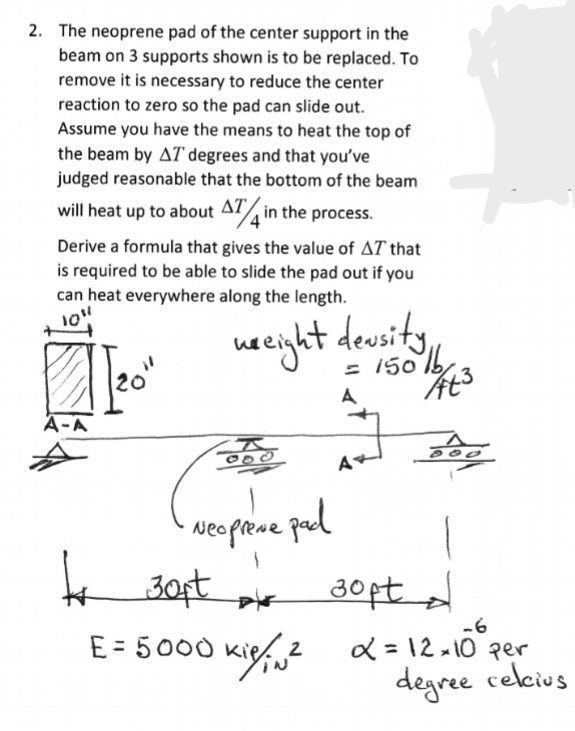 2. The neoprene pad of the center support in the
beam on 3 supports shown is to be replaced. To
remove it is necessary to reduce the center
reaction to zero so the pad can slide out.
Assume you have the means to heat the top of
the beam by ΔT degrees and that you've
judged reasonable that the bottom of the beam
will heat up to about ΔT/4 in the process.
Derive a formula that gives the value of ΔT that
is required to be able to slide the pad out if you
can heat everywhere along the length.
10"
weight density
= 150 lb/ft³
20"
A
A-A
A
Neoprene pad
30ft
30ft
E = 5000 kip/in²
α = 12×10⁻⁶ per
degree celcius